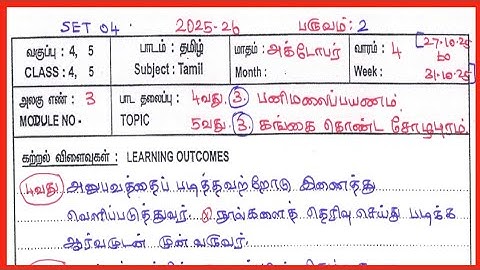 SET 04 2025-26 பருவம்: 2
வகுப்பு : 4, 5 பாடம் : தமிழ் மாதம் : அக்டோபர் வாரம் : 4 27.10.25
CLASS : 4, 5 Subject : Tamil Month : Week : to 31.10.25
அலகு எண் : 3 பாட தலைப்பு : 4வது. 3. பனிமலைப்பயணம்.
MODULE NO - TOPIC 5வது. 3. கங்கை கொண்ட சோழபுரம்.
கற்றல் விளைவுகள் : LEARNING OUTCOMES
4வது. அனுபவத்தைப் படித்தவற்றோடு இணைத்து
வெளிப்படுத்துவர். நூல்களைத் தெரிவு செய்து படிக்க
ஆர்வமுடன் முன் வருவர்.